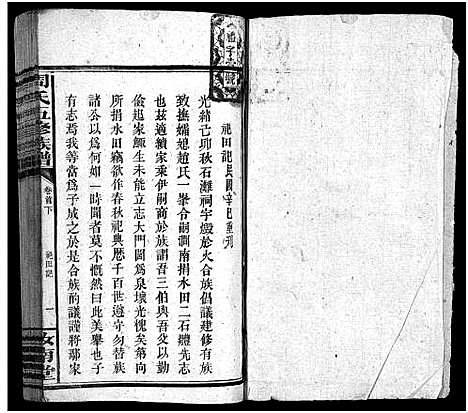 祀田記民國辛巳重刊
光緒己卯秋石灘祠宇燬於火合族倡議建修有族
致撫孀媳趙氏一峯合嗣澗南捐水田二石體先志
也茲適續家乘伊嗣商於族謂吾三伯與吾父以勤
儉起家鯫生未能立志大門閭為泉壤光愧矣第向
所捐水田竊欲作春秋祀典歷千百世遵守勿替族
諸公以為何如一時聞者莫不慨然曰此美舉也子
有志焉我等當為子成之於是合族酌議謹將鄢家
周氏五修族譜
卷首下
祀田記
一
汝南堂